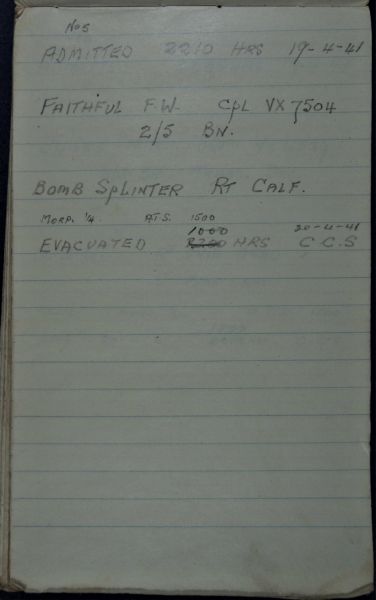 No 5
ADMITTED 2210 HRS 19-4-41
FAITHFUL F.W. Cpl VX7504
2/5 BN.
BOMB SPLINTER RT CALF.
MORP. 1/4 A.T.S. 1500
1000 20-4-41
EVACUATED HRS C.C.S